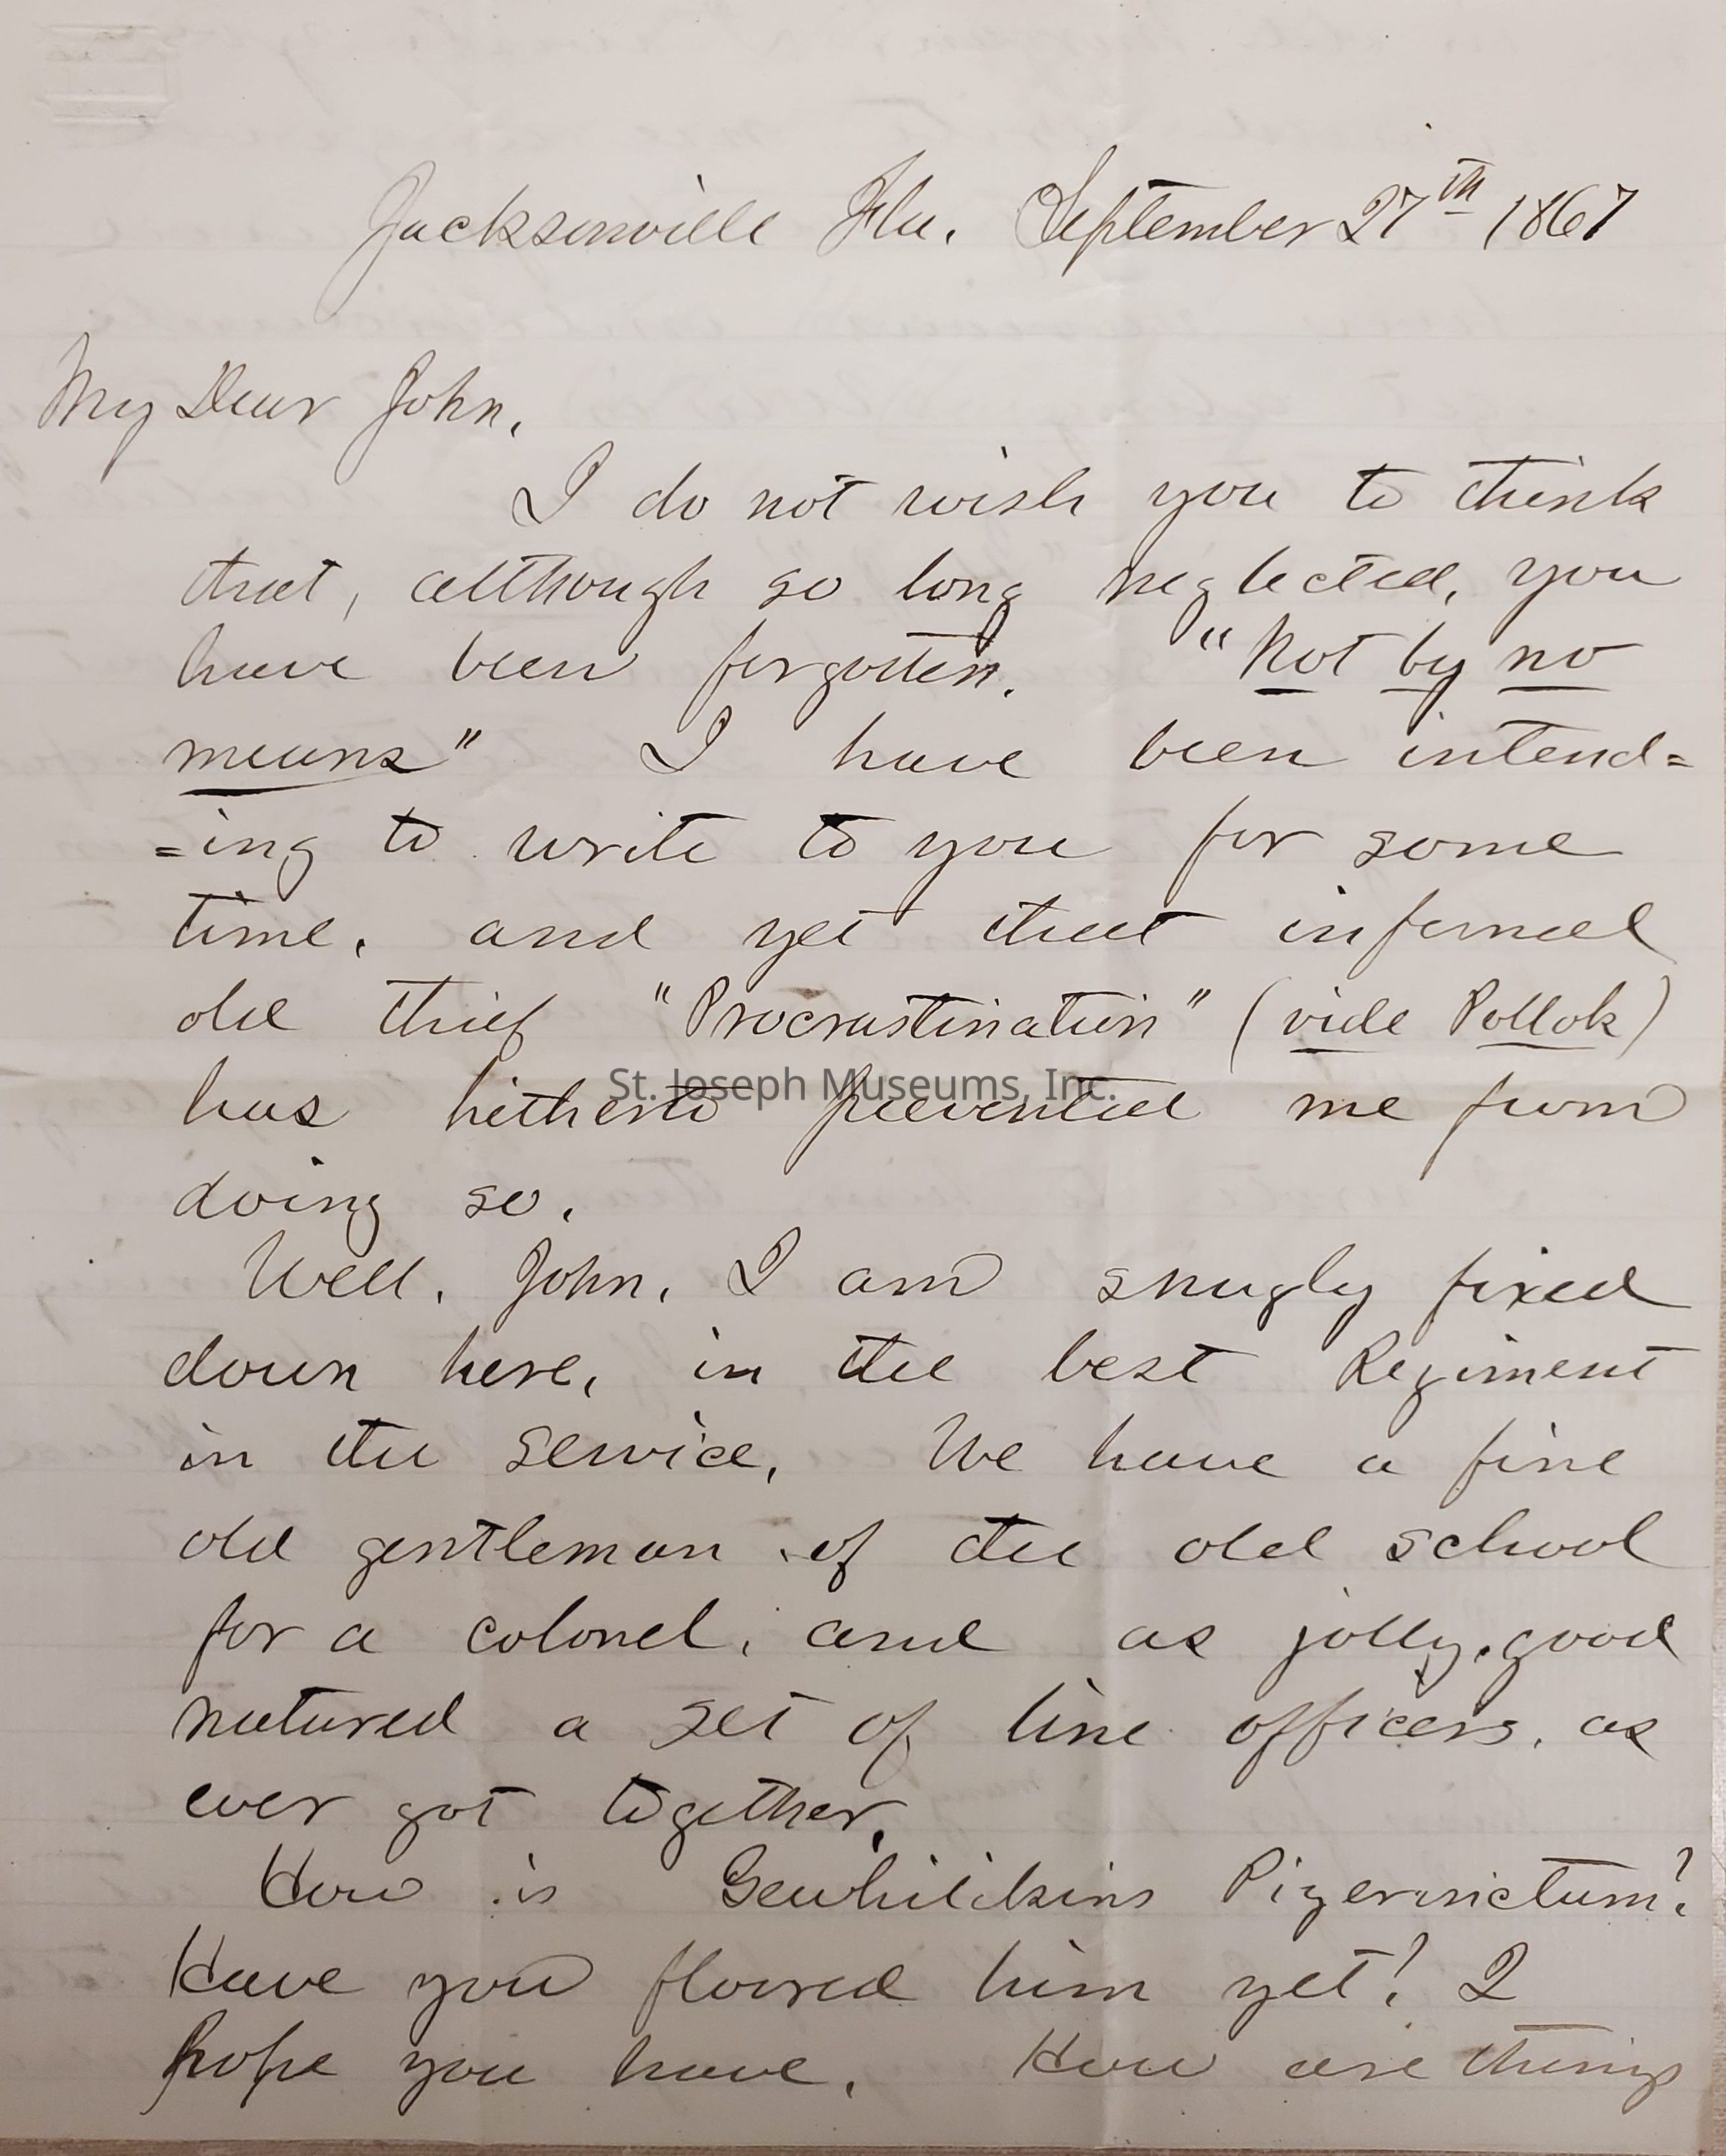 Jacksonville Fla. September 27th 1867
My Dear John,
I do not wish you to think
that, although so long neglected, you
have been forgotten. "Not by no
means" I have been intend=
=ing to write to you for some
time, and yet that infernal
old thief "Procrastination" (vide Pollok)
St. Joseph Museums, Inc.
has hitherto prevented me from
doing so.
Well, John, I am snugly fixed
down here, in the best Regiment
in the service, We have a fine
old gentleman of the old school
for a colonel, and as jolly, good
natured a set of line officers, as
ever got together,
How is
Have you floored him yet? I
hope you have. How are things